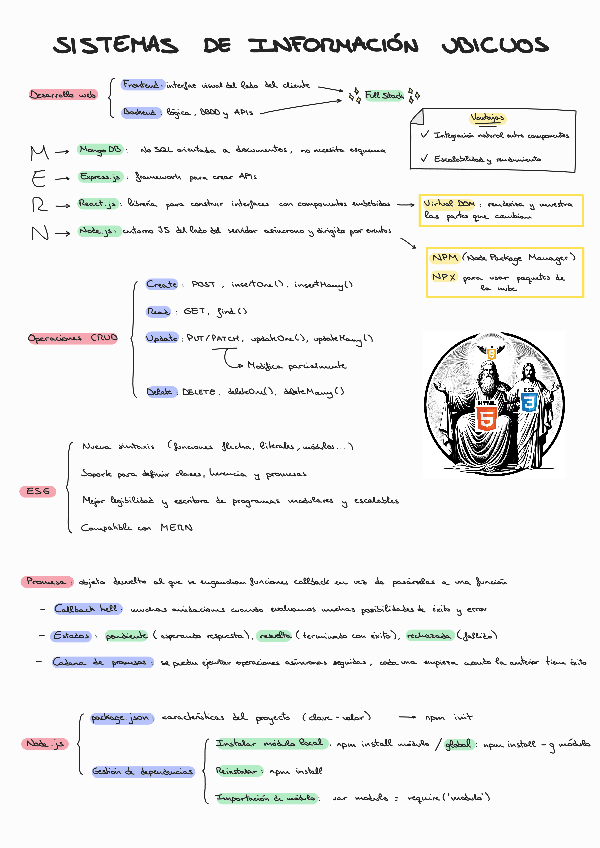 SISTEMAS DE INFORMACIÓN UBICUOS
Desarrollo web
Frontend: interfaz visual del lado del cliente
Backend: lógica, BBDD y APIs
Full Stack
Ventajas
✓ Integración natural entre componentes
✓ Escalabilidad y rendimiento
M → MongoDB: No SQL orientada a documentos, no necesita esquema
E → Express.js: framework para crear APIs
R → React.js: librería para construir interfaces con componentes embebidos →
Virtual DOM: renderiza y muestra
las partes que cambian
N → Node.js: entorno JS del lado del servidor asíncrono y dirigido por eventos
NPM (Node Package Manager)
NPX para usar paquetes de
la nube
Operaciones CRUD
Create: POST, insertOne(), insertMany()
Read: GET, find()
Update: PUT/PATCH, updateOne(), updateMany()
Modifica parcialmente
Delete: DELETE, deleteOne(), deleteMany()
JS
HTML
5
CSS
3
ES6
Nueva sintaxis (funciones flecha, literales, módulos...)
Soporte para definir clases, herencia y promesas
Mejor legibilidad y escritura de programas modulares y escalables
Compatible con MERN
Promesa: objeto devuelto al que se enganchan funciones callback en vez de pasárselas a una función
– Callback hell: muchas anidaciones cuando evaluamos muchas posibilidades de éxito y error
– Estados: pendiente (esperando respuesta), resuelta (terminado con éxito), rechazada (fallido)
– Cadena de promesas: se pueden ejecutar operaciones asíncronas seguidas, cada una empieza cuando la anterior tiene éxito
Node.js
package.json características del proyecto (clave-valor) → npm init
Gestión de dependencias
Instalar módulo local: npm install módulo / global: npm install -g módulo
Reinstalar: npm install
Importación de módulo: var modulo = require('modulo')